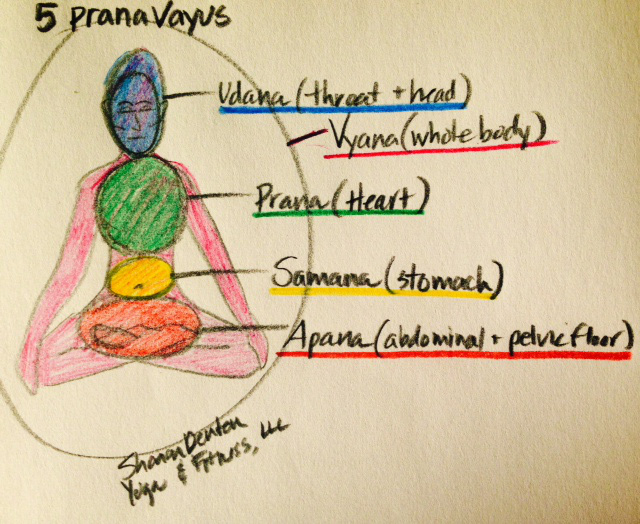 5 pranaVayus
Udana (throat + head)
Vyana (whole body)
Prana (Heart)
Samana (stomach)
Apana (abdominal + pelvic floor)
Denton
Yoga & Fitness, LLC